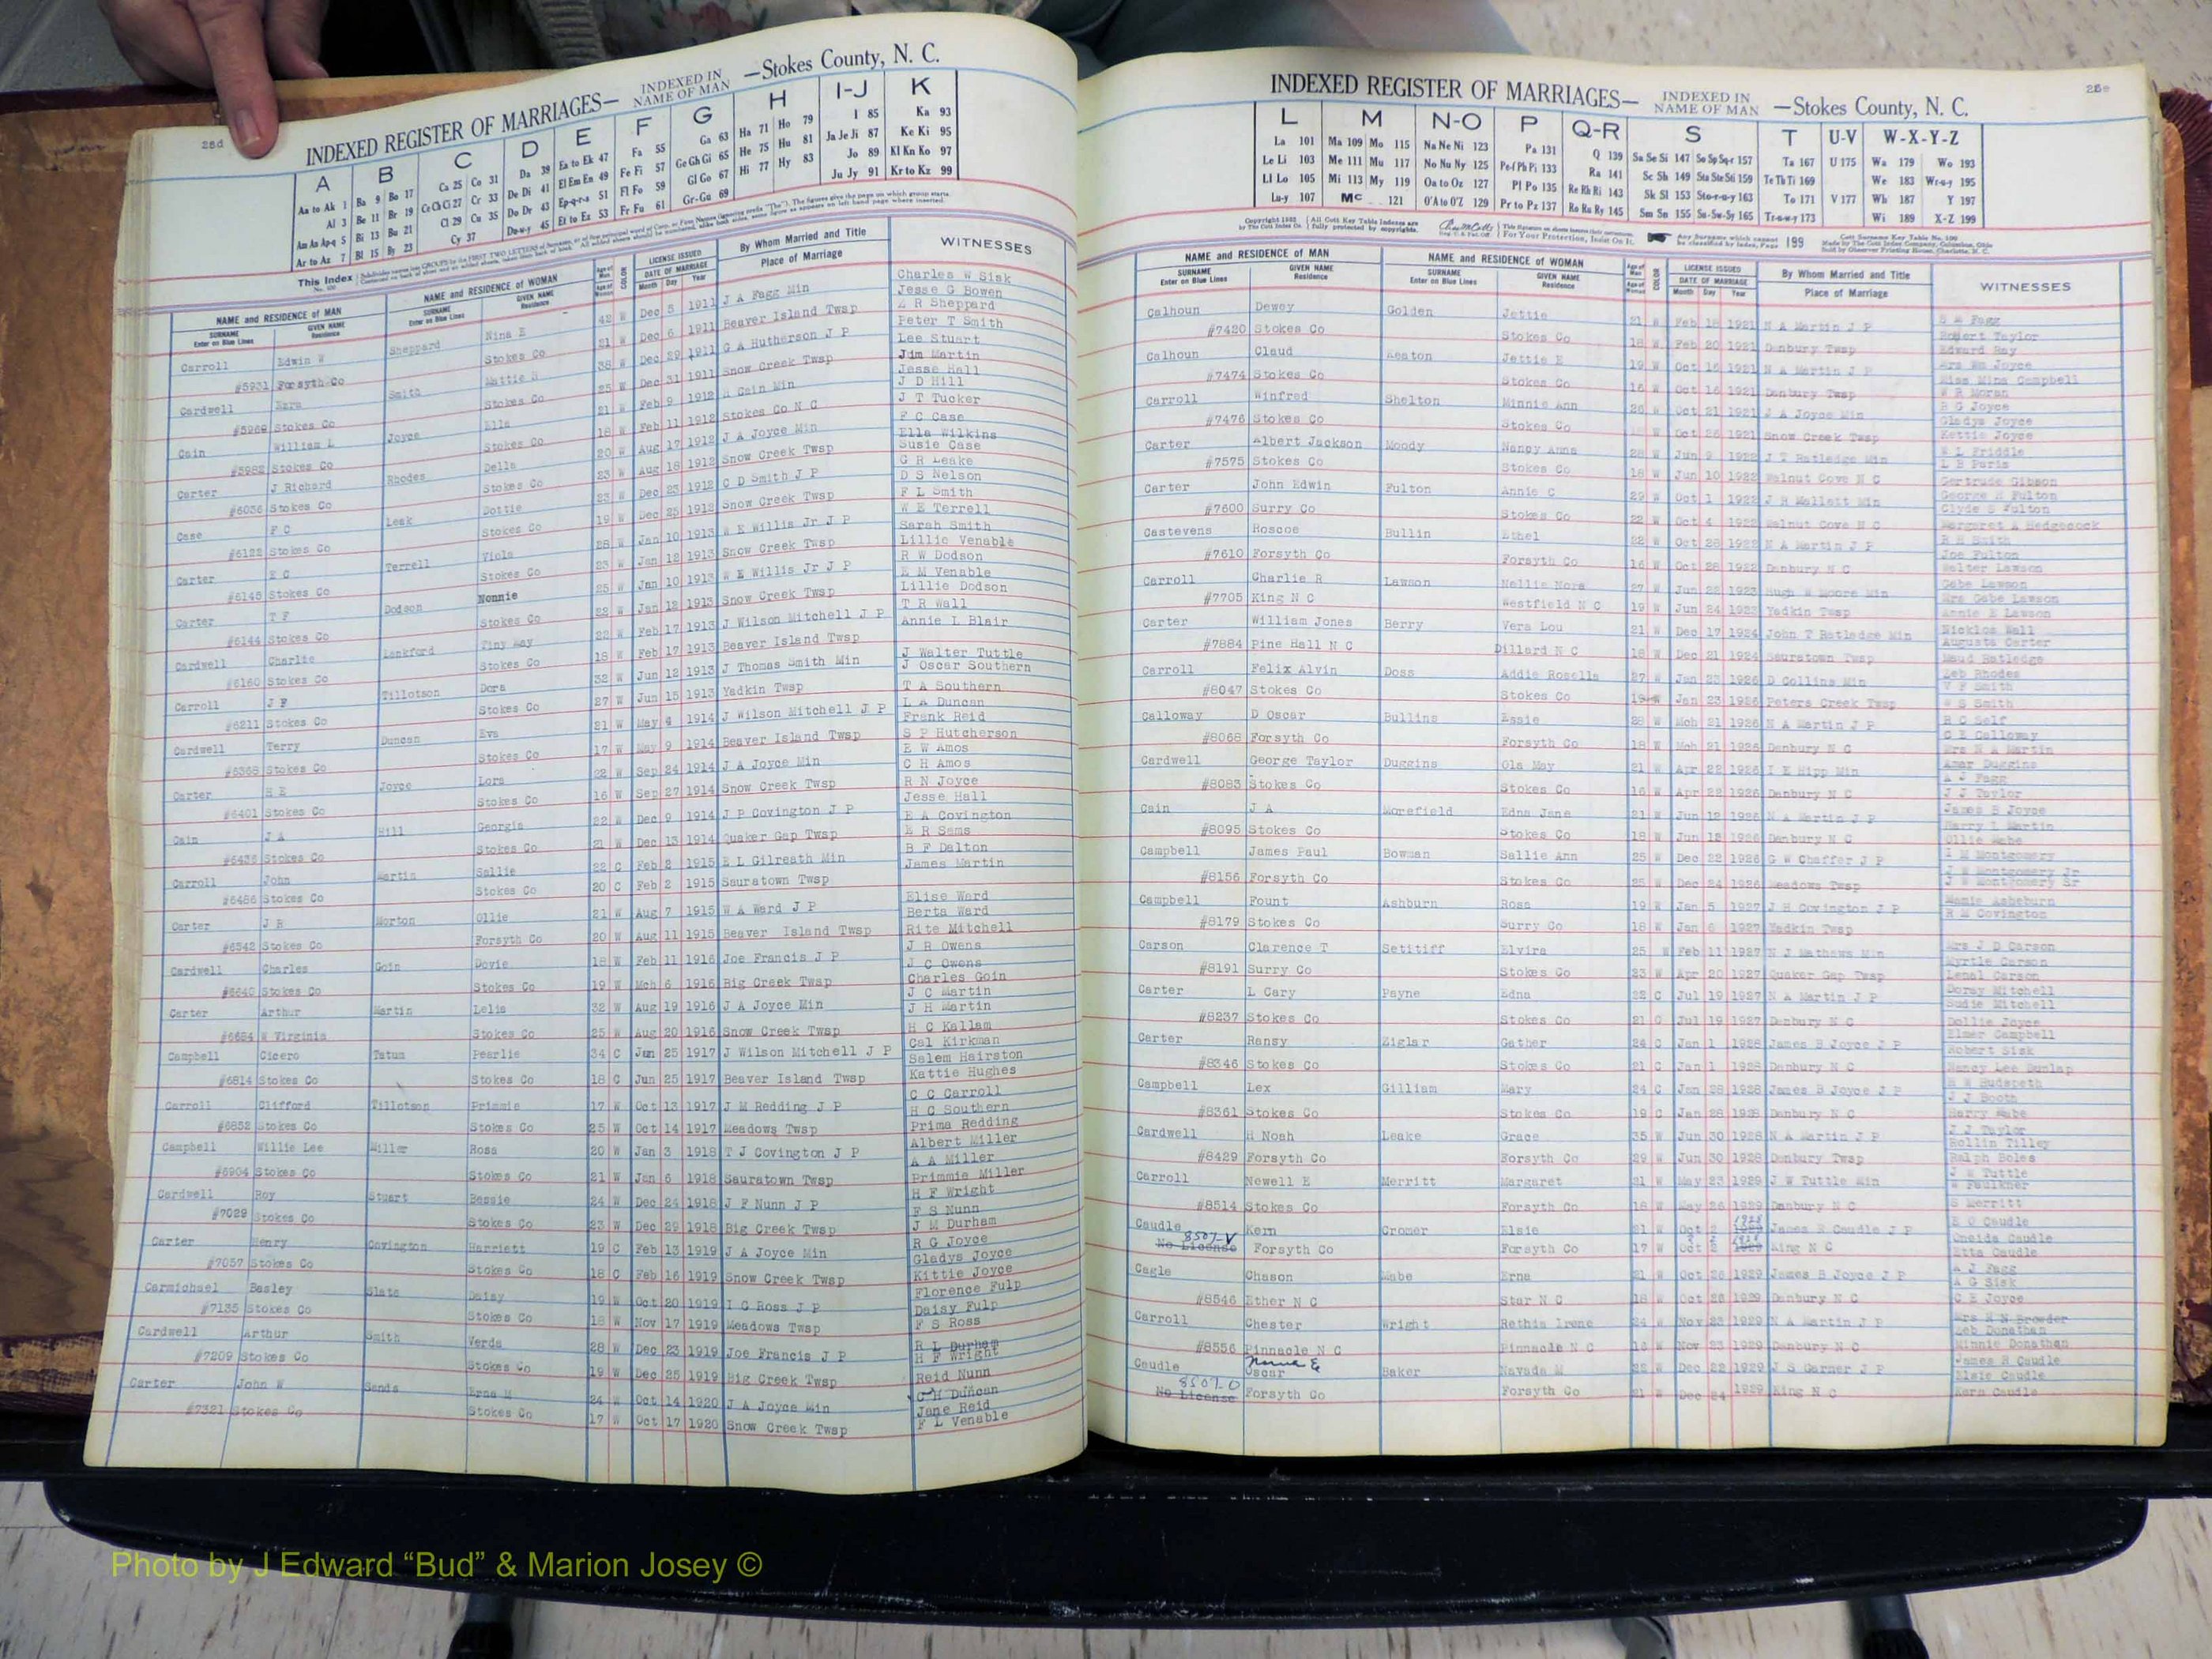 25d
INDEXED REGISTER OF MARRIAGES— INDEXED IN NAME OF MAN —Stokes County, N. C.
A B C D E F G H I-J K
Aa to Ak 1 Ba 9 Bo 17 Ca 25 Co 31 Da 39 Ea to Ek 47 Fa 55 Ga 63 Ha 71 Ho 79 I 85 Ka 93
Al 3 Be 11 Br 19 Ce Ch Ci 27 Cr 33 De Di 41 El Em En 49 Fe Fi 57 Ge Gh Gi 65 He 75 Hu 81 Ja Je Ji 87 Ke Ki 95
Am An Ap-q 5 Bi 13 Bu 21 Cl 29 Cu 35 Do Dr 43 Ep-q-r-s 51 Fl Fo 59 Gl Go 67 Hi 77 Hy 83 Jo 89 Kl Kn Ko 97
Ar to Az 7 Bl 15 By 23 Cy 37 Du-w-y 45 Et to Ez 53 Fr Fu 61 Gr-Gu 69 Ju Jy 91 Kr to Kz 99
This Index
NAME and RESIDENCE OF MAN NAME and RESIDENCE OF WOMAN LICENSE ISSUED By Whom Married and Title WITNESSES
SURNAME Enter on Blue Lines GIVEN NAME Residence SURNAME Enter on Blue Lines GIVEN NAME Residence COLOR DATE OF MARRIAGE Month Day Year Place of Marriage
Carroll Edwin W Sheppard Nina E 42 W Dec 5 1911 J A Fagg Min Charles W Sisk
Jesse G Bowen
#5931 Forsyth Co Stokes Co 21 W Dec 6 1911 Beaver Island Twsp R Sheppard
Cardwell Ezra Smith Mattie 38 W Dec 29 1911 G A Hutherson J P Peter T Smith
Lee Stuart
#5968 Stokes Co Stokes Co 25 W Dec 31 1911 Snow Creek Twsp Jim Martin
Cain William L Joyce Ella 21 W Feb 9 1912 Cain Min Jesse Hall
J D Hill
#5982 Stokes Co Stokes Co 18 W Feb 11 1912 Stokes Co N C J T Tucker
Carter J Richard Rhodes Della 20 W Aug 17 1912 J A Joyce Min F C Case
Ella Wilkins
#6036 Stokes Co Stokes Co 23 W Aug 18 1912 Snow Creek Twsp Susie Case
Case F C Leak Dottie 23 W Dec 23 1912 C D Smith J P G R Leake
D S Nelson
#6122 Stokes Co Stokes Co 19 W Dec 25 1912 Snow Creek Twsp F L Smith
Carter E C Terrell Viola 28 W Jan 10 1913 W E Willis Jr J P W E Terrell
Sarah Smith
#6143 Stokes Co Stokes Co 23 W Jan 12 1913 Snow Creek Twsp Lillie Venable
Carter T F Dodson Nonnie 25 W Jan 10 1913 W E Willis Jr J P R W Dodson
E M Venable
#6144 Stokes Co Stokes Co 22 W Jan 12 1913 Snow Creek Twsp Lillie Dodson
Cardwell Charlie Lankford Tiny May 22 W Feb 17 1913 J Wilson Mitchell J P T R Wall
Annie L Blair
#6160 Stokes Co Stokes Co 18 W Feb 17 1913 Beaver Island Twsp
Carroll J F Tillotson Dora 32 W Jun 12 1913 J Thomas Smith Min J Walter Tuttle
J Oscar Southern
#6211 Stokes Co Stokes Co 27 W Jun 15 1913 Yadkin Twsp T A Southern
Cardwell Terry Duncan Eva 21 W May 4 1914 J Wilson Mitchell J P L A Duncan
Frank Reid
#6368 Stokes Co Stokes Co 17 W May 9 1914 Beaver Island Twsp S P Hutcherson
Carter S E Joyce Lora 22 W Sep 24 1914 J A Joyce Min E W Amos
C H Amos
#6401 Stokes Co Stokes Co 16 W Sep 27 1914 Snow Creek Twsp R N Joyce
Cain J A Hill Georgia 22 W Dec 9 1914 J P Covington J P Jesse Hall
E A Covington
#6436 Stokes Co Stokes Co 21 W Dec 13 1914 Quaker Gap Twsp E R Sams
Carroll John Martin Sallie 22 C Feb 2 1915 E L Gilreath Min B F Dalton
James Martin
#6486 Stokes Co Stokes Co 20 C Feb 2 1915 Sauratown Twsp
Carter J R Morton Ollie 21 W Aug 7 1915 W A Ward J P Elise Ward
Berta Ward
#6542 Stokes Co Forsyth Co 20 W Aug 11 1915 Beaver Island Twsp Rite Mitchell
Cardwell Charles Goin Dovie 18 W Feb 11 1916 Joe Francis J P J R Owens
J C Owens
#6640 Stokes Co Stokes Co 19 W Mch 6 1916 Big Creek Twsp Charles Goin
Carter Arthur Martin Lelia 32 W Aug 19 1916 J A Joyce Min J C Martin
J H Martin
#6684 W Virginia Stokes Co 25 W Aug 20 1916 Snow Creek Twsp H C Kallam
Campbell Cicero Tatum Pearlie 34 C Jun 25 1917 J Wilson Mitchell J P Cal Kirkman
Salem Hairston
#6814 Stokes Co Stokes Co 18 C Jun 25 1917 Beaver Island Twsp Kattie Hughes
Carroll Clifford Tillotson Primmie 17 W Oct 13 1917 J M Redding J P C C Carroll
H C Southern
#6852 Stokes Co Stokes Co 25 W Oct 14 1917 Meadows Twsp Prima Redding
Campbell Willie Lee Miller Rosa 20 W Jan 3 1918 T J Covington J P Albert Miller
A A Miller
#6904 Stokes Co Stokes Co 21 W Jan 6 1918 Sauratown Twsp Primmie Miller
Cardwell Roy Stuart Bessie 24 W Dec 24 1918 J F Nunn J P H F Wright
F S Nunn
#7029 Stokes Co Stokes Co 23 W Dec 29 1918 Big Creek Twsp J M Durham
Carter Henry Covington Harriett 19 C Feb 13 1919 J A Joyce Min R G Joyce
Gladys Joyce
#7057 Stokes Co Stokes Co 18 C Feb 16 1919 Snow Creek Twsp Kittie Joyce
Carmichael Basley Slate Daisy 19 W Oct 20 1919 I G Ross J P Florence Fulp
Daisy Fulp
#7135 Stokes Co Stokes Co 18 W Nov 17 1919 Meadows Twsp F S Ross
Cardwell Arthur Smith Verda 28 W Dec 23 1919 Joe Francis J P R L Durham
H F Wright
#7209 Stokes Co Stokes Co 19 W Dec 25 1919 Big Creek Twsp Reid Nunn
Carter John W Sands Erna M 24 W Oct 14 1920 J A Joyce Min C H Duncan
Jane Reid
#7321 Stokes Co Stokes Co 17 W Oct 17 1920 Snow Creek Twsp F L Venable
25e
INDEXED REGISTER OF MARRIAGES— INDEXED IN NAME OF MAN —Stokes County, N. C.
L M N-O P Q-R S T U-V W-X-Y-Z
La 101 Ma 109 Mo 115 Na Ne Ni 123 Pa 131 Q 139 Sa Se Si 147 So Sp Sq-r 157 Ta 167 U 175 Wa 179 Wo 193
Le Li 103 Me 111 Mu 117 No Nu Ny 125 Pe-f Ph Pi 133 Ra 141 Sc Sh 149 Sta Ste Sti 159 Te Th Ti 169 We 183 Wr-u-y 195
Ll Lo 105 Mi 113 My 119 Oa to Oz 127 Pl Po 135 Re Rh Ri 143 Sk Sl 153 Sto-r-u-y 163 To 171 V 177 Wh 187 Y 197
Lu-y 107 Mc 121 O'A to O'Z 129 Pr to Pz 137 Ro Ru Ry 145 Sm Sn 155 Su-Sw-Sy 165 Tr-u-w-y 173 Wi 189 X-Z 199
NAME and RESIDENCE OF MAN NAME and RESIDENCE OF WOMAN LICENSE ISSUED By Whom Married and Title WITNESSES
SURNAME Enter on Blue Lines GIVEN NAME Residence SURNAME Enter on Blue Lines GIVEN NAME Residence COLOR DATE OF MARRIAGE Month Day Year Place of Marriage
Calhoun Dewey Golden Jettie 21 W Feb 18 1921 N A Martin J P Fagg
Robert Taylor
#7420 Stokes Co Stokes Co 18 W Feb 20 1921 Danbury Twsp Edward Ray
Calhoun Claud Heaton Jettie E 19 W Oct 16 1921 N A Martin J P Mrs Wm Joyce
Miss Mina Campbell
#7474 Stokes Co Stokes Co 16 W Oct 16 1921 Danbury Twsp W R Moran
Carroll Winfred Shelton Minnie Ann 26 W Oct 21 1921 J A Joyce Min R G Joyce
Gladys Joyce
#7476 Stokes Co Stokes Co Oct 26 1921 Snow Creek Twsp Kettie Joyce
Carter Albert Jackson Moody Nancy Anna 28 W Jun 9 1922 J T Ratledge Min W L Priddle
L B Paris
#7575 Stokes Co Stokes Co 18 W Jun 10 1922 Walnut Cove N C Gertrude Gibson
Carter John Edwin Fulton Annie C 29 W Oct 1 1922 J R Mallett Min George H Fulton
Clyde S Fulton
#7600 Surry Co Stokes Co 22 W Oct 4 1922 Walnut Cove N C Margaret A Hedgecock
Castevens Roscoe Bullin Ethel 22 W Oct 28 1922 N A Martin J P R H Smith
Joe Fulton
#7610 Forsyth Co Forsyth Co 16 W Oct 28 1922 Danbury N C Walter Lawson
Carroll Charlie R Lawson Nellie Nora 27 W Jun 22 1923 Hugh W Moore Min Gabe Lawson
Mrs Gabe Lawson
#7705 King N C Westfield N C 19 W Jun 24 1923 Yadkin Twsp Annie E Lawson
Carter William Jones Berry Vera Lou 21 W Dec 17 1924 John T Ratledge Min Nicklos Wall
Augusta Carter
#7884 Pine Hall N C Dillard N C 18 W Dec 21 1924 Sauratown Twsp Maud Ratledge
Carroll Felix Alvin Doss Addie Rosella 27 W Jan 23 1926 D Collins Min Zeb Rhodes
V F Smith
#8047 Stokes Co Stokes Co 19 W Jan 23 1926 Peters Creek Twsp W S Smith
Calloway D Oscar Bullins Essie 28 W Mch 21 1926 N A Martin J P R C Self
C E Calloway
#8068 Forsyth Co Forsyth Co 18 W Mch 21 1926 Danbury N C Mrs N A Martin
Cardwell George Taylor Duggins Ola May 21 W Apr 22 1926 I E Hipp Min Amar Duggins
A J Fagg
#8083 Stokes Co Stokes Co 16 W Apr 22 1926 Danbury N C J J Taylor
Cain J A Morefield Edna Jane 21 W Jun 12 1926 N A Martin J P James B Joyce
Harry L Martin
#8095 Stokes Co Stokes Co 18 W Jun 12 1926 Danbury N C Ollie Mabe
Campbell James Paul Bowman Sallie Ann 25 W Dec 22 1926 G W Chaffer J P I M Montgomery
J W Montgomery Jr
#8156 Forsyth Co Stokes Co 25 W Dec 24 1926 Meadows Twsp J W Montgomery Sr
Campbell Fount Ashburn Rosa 19 W Jan 5 1927 J H Covington J P Mamie Asheburn
R M Covington
#8179 Stokes Co Surry Co 18 W Jan 6 1927 Yadkin Twsp
Carson Clarence T Setitiff Elvira 25 W Feb 11 1927 N J Mathews Min Mrs J D Carson
Myrtle Carson
#8191 Surry Co Stokes Co 23 W Apr 20 1927 Quaker Gap Twsp Lenal Carson
Carter L Cary Payne Edna 22 C Jul 19 1927 N A Martin J P Doray Mitchell
Sudie Mitchell
#8237 Stokes Co Stokes Co 21 C Jul 19 1927 Danbury N C Dollie Joyce
Carter Ransy Ziglar Gather 24 C Jan 1 1928 James B Joyce J P Elmer Campbell
Robert Sisk
#8346 Stokes Co Stokes Co 21 C Jan 1 1928 Danbury N C Nancy Lee Dunlap
Campbell Lex Gilliam Mary 24 C Jan 28 1928 James B Joyce J P H W Hudspeth
J J Booth
#8361 Stokes Co Stokes Co 19 C Jan 28 1928 Danbury N C Harry Mabe
Cardwell H Noah Leake Grace 35 W Jun 30 1928 N A Martin J P J J Taylor
Rollin Tilley
#8429 Forsyth Co Forsyth Co 29 W Jun 30 1928 Danbury Twsp Ralph Boles
Carroll Newell E Merritt Margaret 21 W May 23 1929 J W Tuttle Min J W Tuttle
W Faulkner
#8514 Stokes Co Forsyth Co 18 W May 26 1929 Danbury N C S Merritt
Caudle Kern Cromer Elsie 21 W Oct 2 1928 James R Caudle J P E O Caudle
8507-V Oneida Caudle
No License Forsyth Co Forsyth Co 17 W Oct 2 1928 King N C Etta Caudle
Cagle Chason Mabe Erna 21 W Oct 26 1929 James B Joyce J P A J Fagg
A G Sisk
#8546 Ether N C Star N C 18 W Oct 26 1929 Danbury N C C E Joyce
Carroll Chester Wright Rethia Irene 24 W Nov 23 1929 N A Martin J P Mrs R N Browder
Zeb Donathan
#8556 Pinnacle N C Pinnacle N C 18 W Nov 23 1929 Danbury N C Minnie Donathan
Caudle Norma E Oscar Baker Navada M 22 W Dec 22 1929 J S Garner J P James R Caudle
8507-O Elsie Caudle
No License Forsyth Co Forsyth Co 21 W Dec 24 1929 King N C Kern Caudle
Photo by J Edward “Bud” & Marion Josey ©